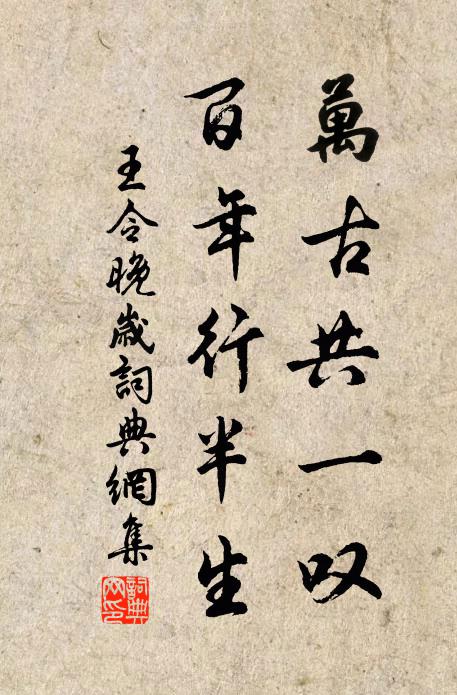 萬古共一叹
百年行半生
王令晚歲詞典網集
詞典網印